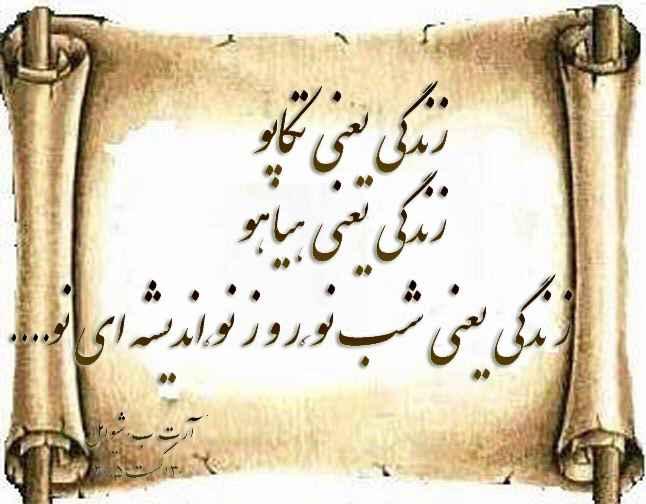 زندگی یعنی تکاپو
زندگی یعنی هیاهو
زندگی یعنی شب نو، روز نو، اندیشه ای نو....
آرت ب